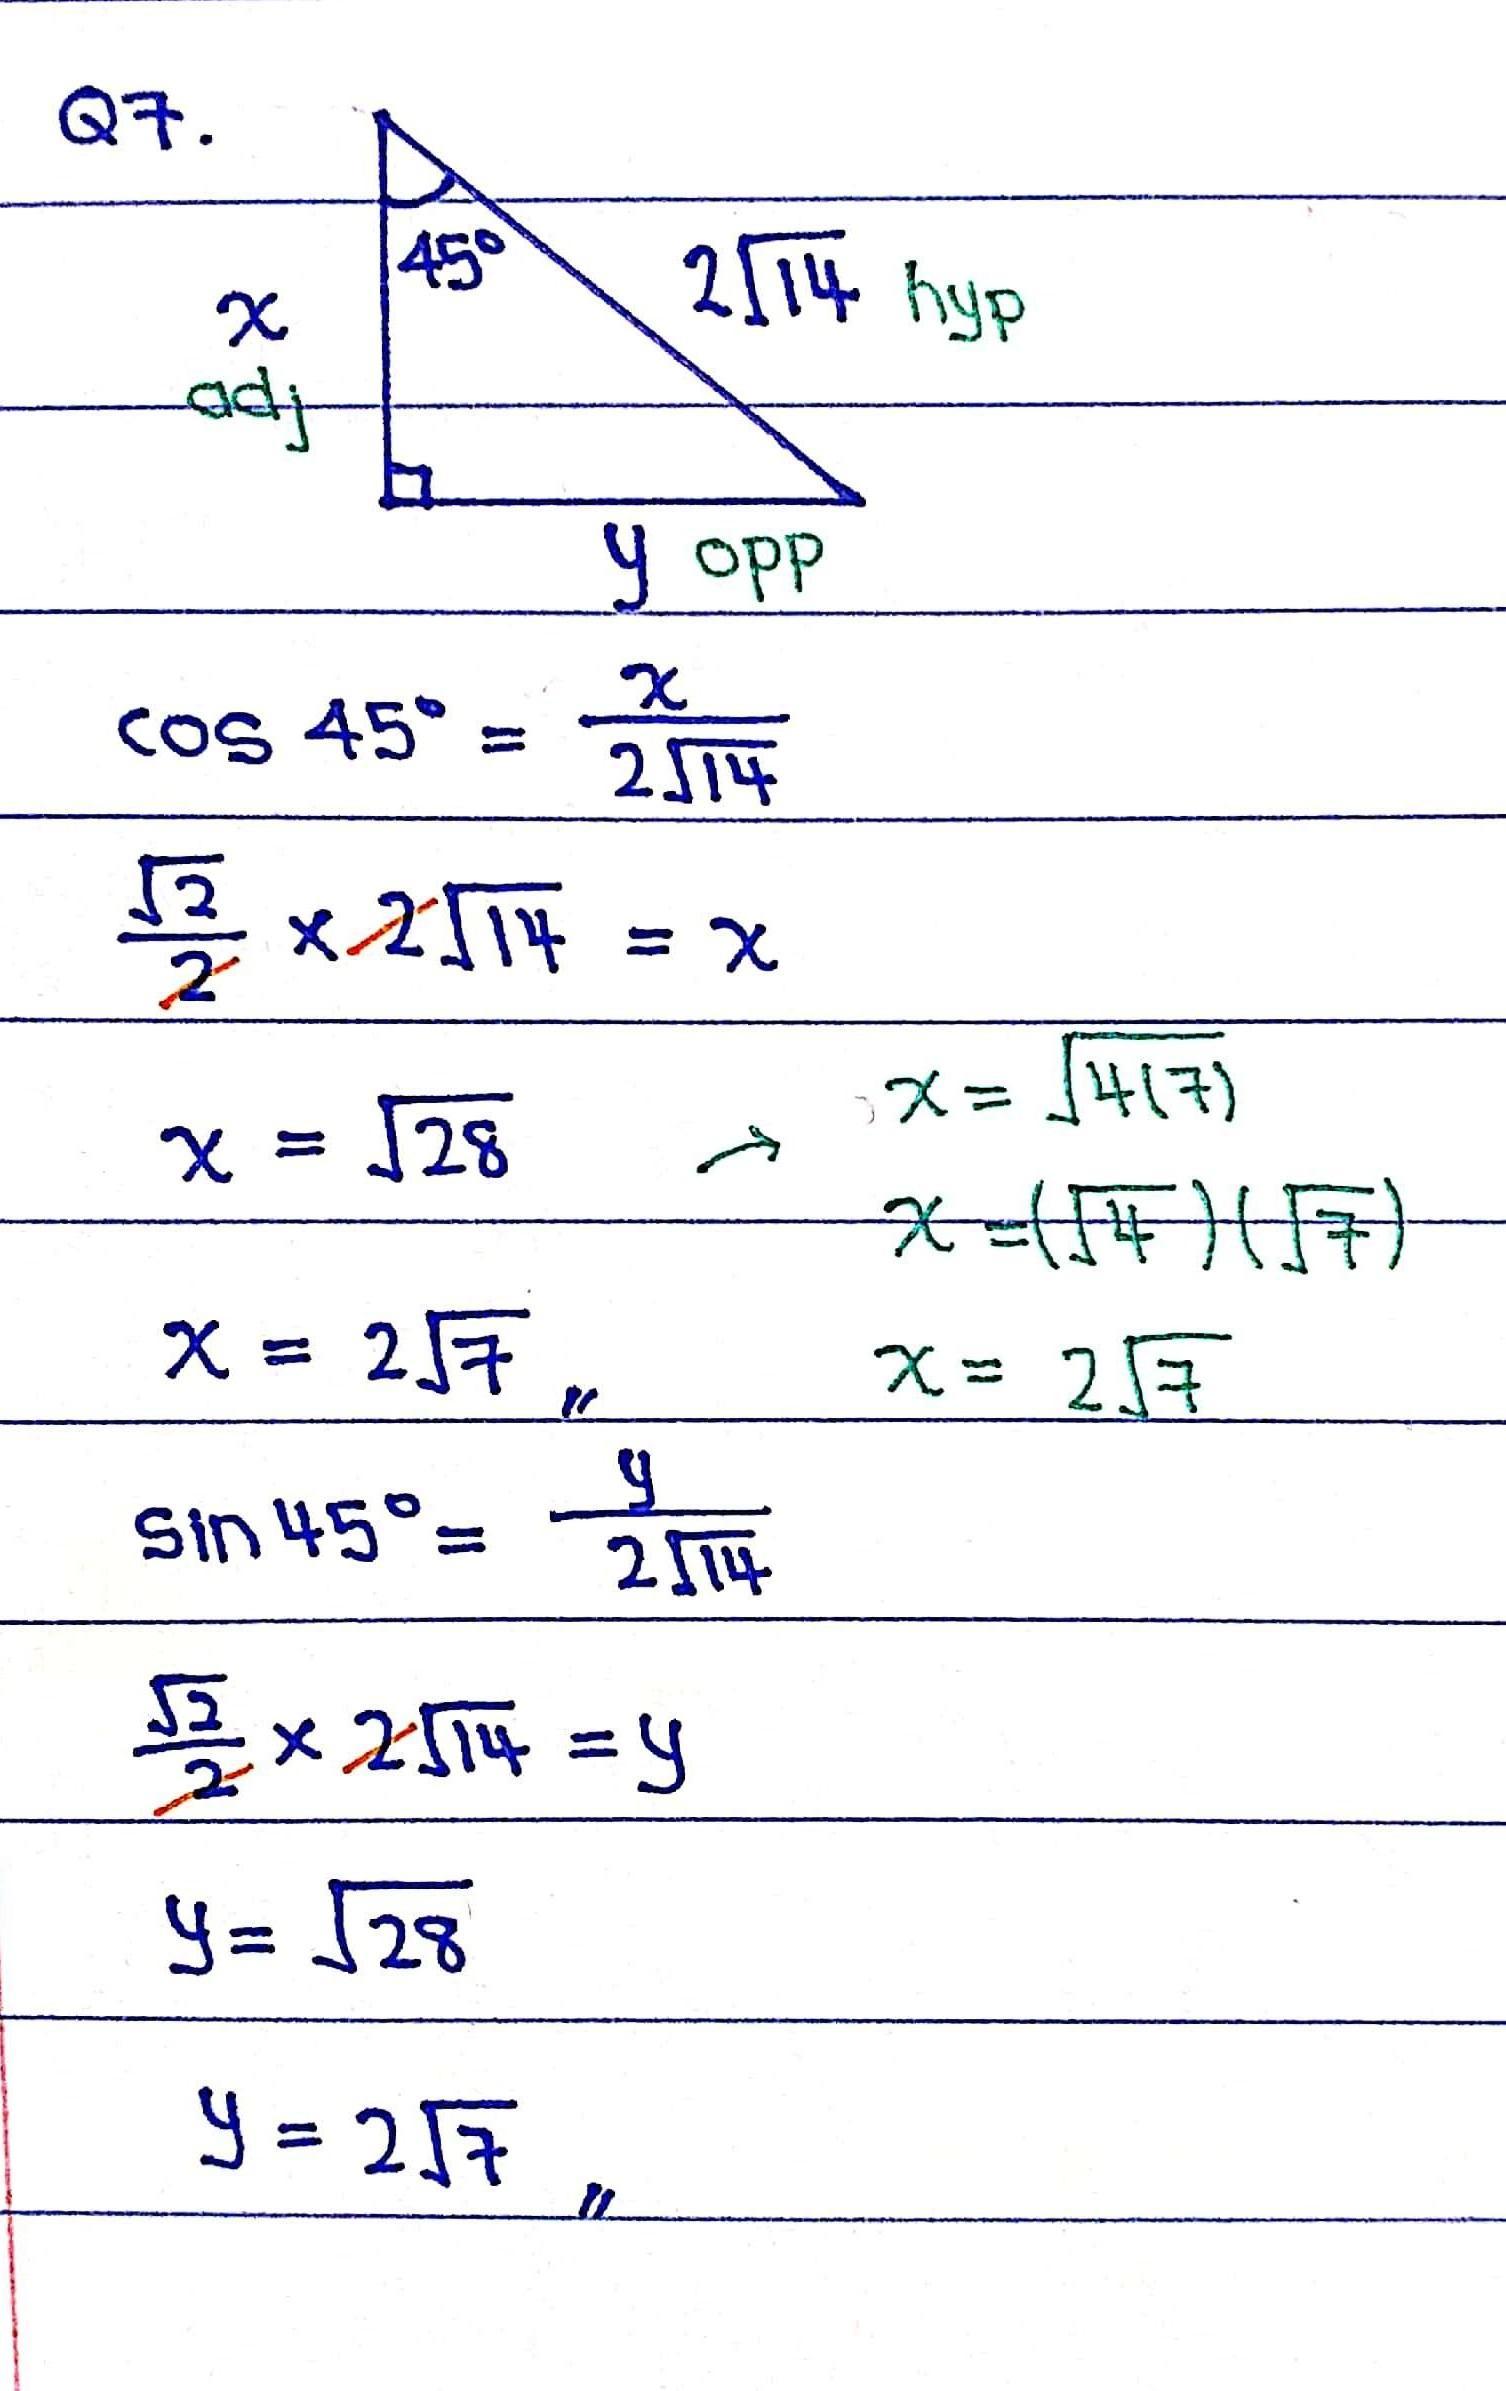 Q7.
45°
2√14 hyp
x
adj
y opp
cos 45° = x/2√14
√2/2 × 2√14 = x
x = √28 → x = √4(7)
x = (√4)(√7)
x = 2√7 〃 x = 2√7
sin 45° = y/2√14
√2/2 × 2√14 = y
y = √28
y = 2√7 〃